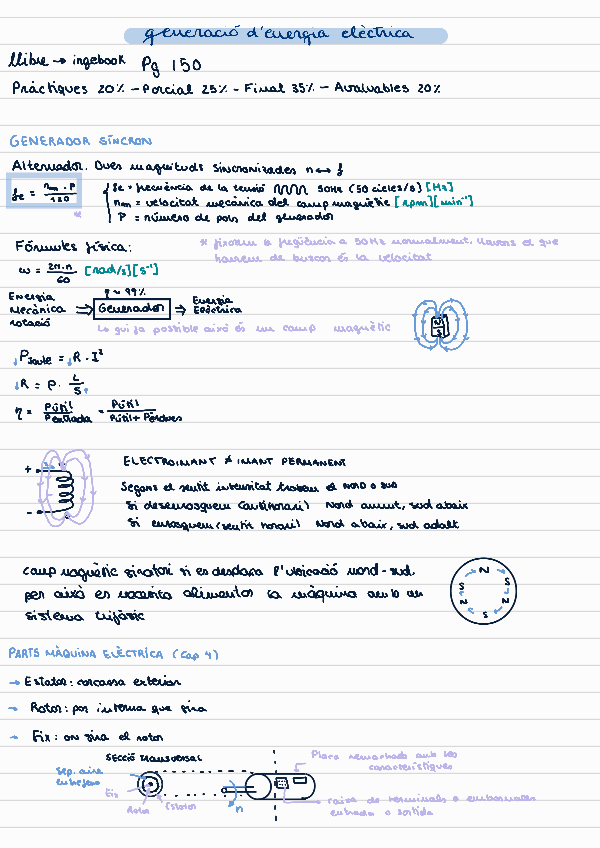 generació d'energia elèctrica
llibre → ingebook Pg 150
Pràctiques 20% - Parcial 25% - Final 35% - Avaluables 20%
GENERADOR SÍNCRON
Alternador. Dues magnituds sincronizades n ↔ f
fe = nm · P / 120
fe = freqüència de la tensió 50Hz (50 cicles/s) [Hz]
nm = velocitat mecànica del camp magnètic [rpm][min⁻¹]
P = número de pols del generador
Fórmules física:
* fixarem la freqüència a 50Hz normalment. Llavors el que
haurem de buscar és la velocitat
ω = 2π·n / 60 [rad/s][s⁻¹]
η ~ 99%
Energia Mecànica rotació ⇒ Generador ⇒ Energia Elèctrica
↳ qui fa possible això és un camp magnètic
N
S
↓PJoule = ↓R · I²
↓R = ρ · L / S↑
η = Pútil / Pentrada = Pútil / Pútil + Pèrdues
ELECTROIMANT ≠ IMANT PERMANENT
+
-
Segons el sentit intensitat trobem el nord o sud
Si desenrosquem (antihorari) Nord amunt, sud abaix
Si enrosquem (sentit horari) Nord abaix, sud adalt
camp magnètic giratori si es desplaça l'ubicació nord-sud.
per això es necessita alimentar la màquina amb un
sistema trifàsic
N
S S
N N
S
PARTS MÀQUINA ELÈCTRICA (Cap 4)
→ Estator: carcassa exterior
→ Rotor: part interna que gira
→ Eix: on gira el rotor
SECCIÓ TRANSVERSAL
Placa remachada amb les
característiques
Sep. aire
entreferro
Eix
Rotor
Estator
n
caixa de terminals o embornals
entrada o sortida